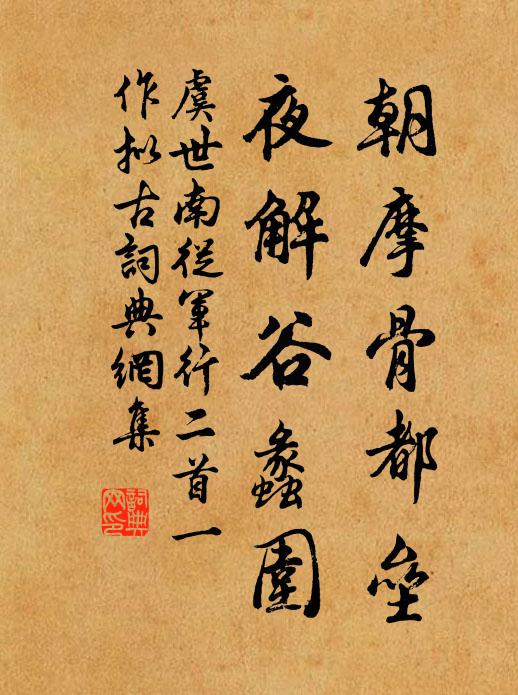 朝摩骨都垒
夜解谷蠡圍
虞世南從軍行二首一
作拟古詞典網集
詞典
网印